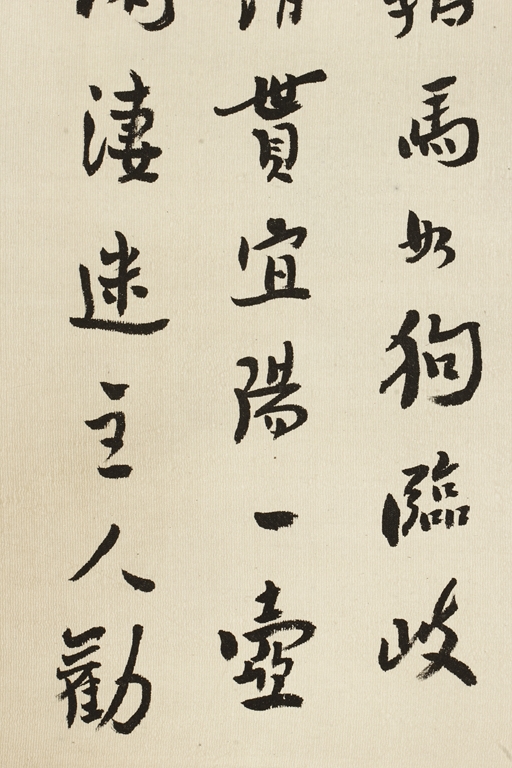 馬如狗臨岐
貰宜陽一壺
淒迷主人勸